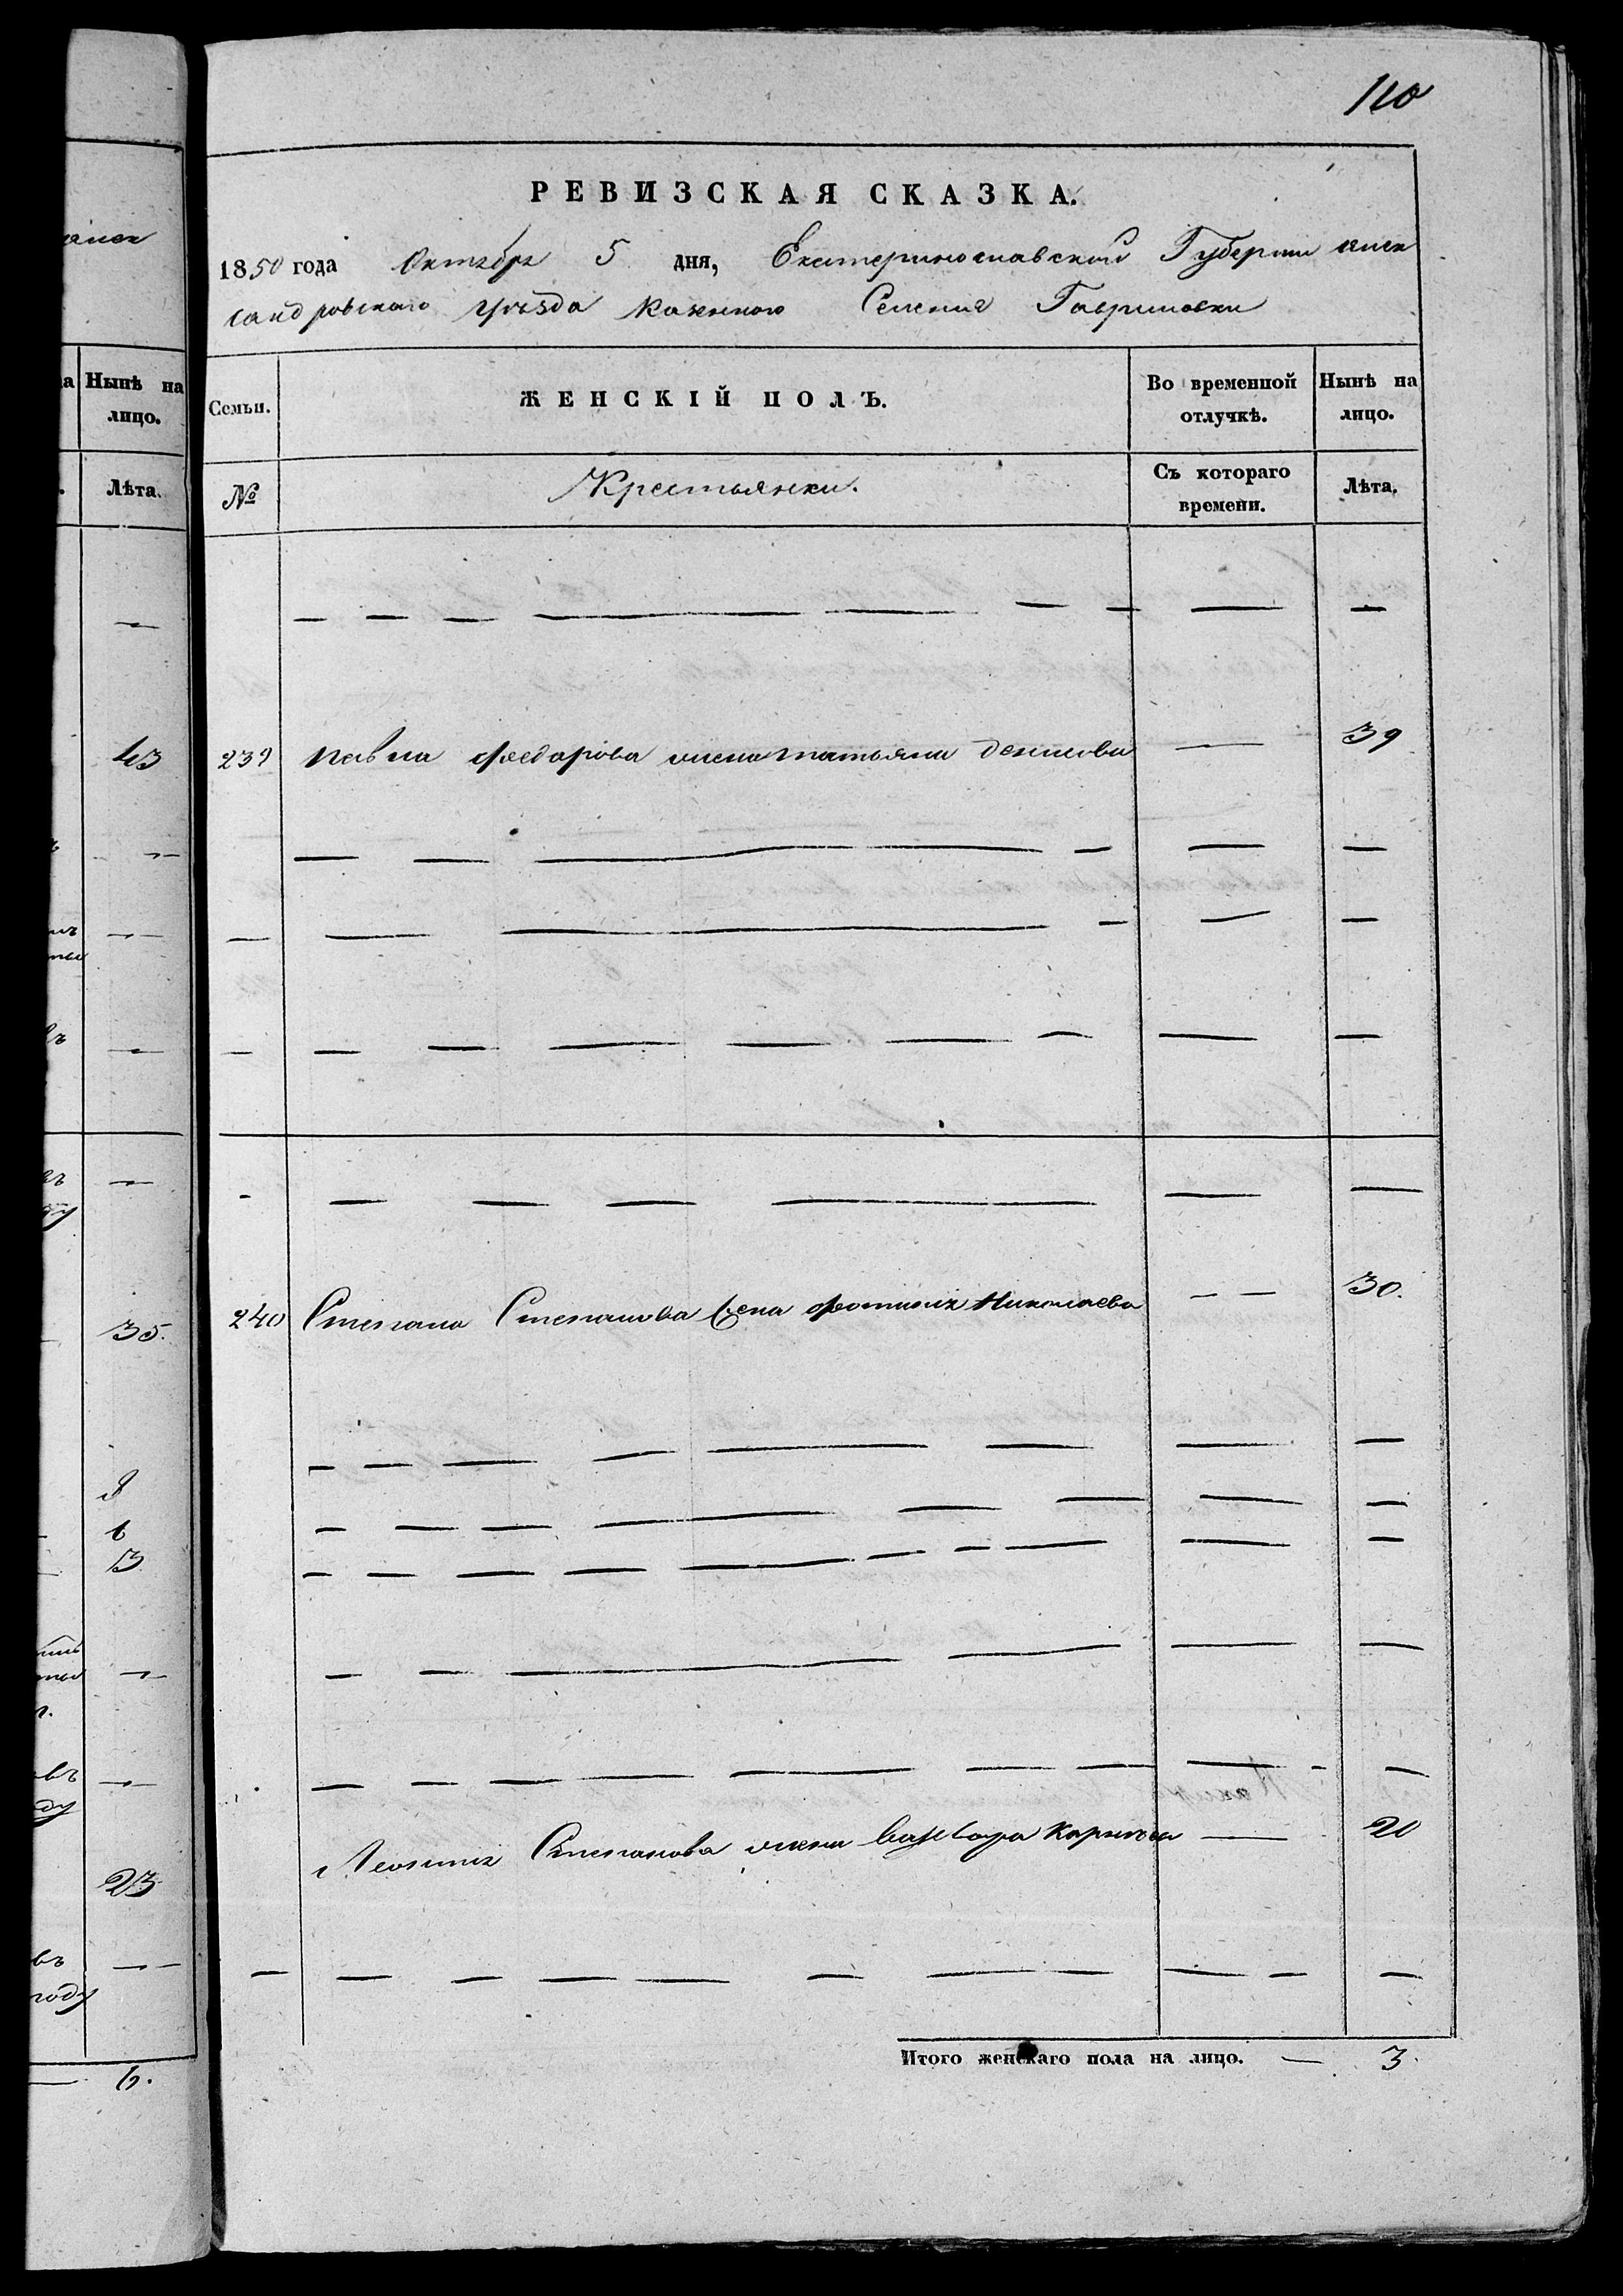 110
РЕВИЗСКАЯ СКАЗКА.
1850 года Октября 5 дня, Екатеринославской Губернии алек
сандровского уѣзда Казенного Селения Гавриловки
Нынѣ на лицо.
Лѣта.
Семьи.
ЖЕНСКІЙ ПОЛЪ.
Во временной отлучкѣ.
Нынѣ на лицо.
№
Крестьянки.
Съ котораго времени.
Лѣта.
43
239 Павла федарова жена татьяна денисова 39
35.
240 Степана Степанова жена фотиния Николаева 30.
23
Степанова жена 20
году
6.
Итого женскаго пола на лицо. — 3.